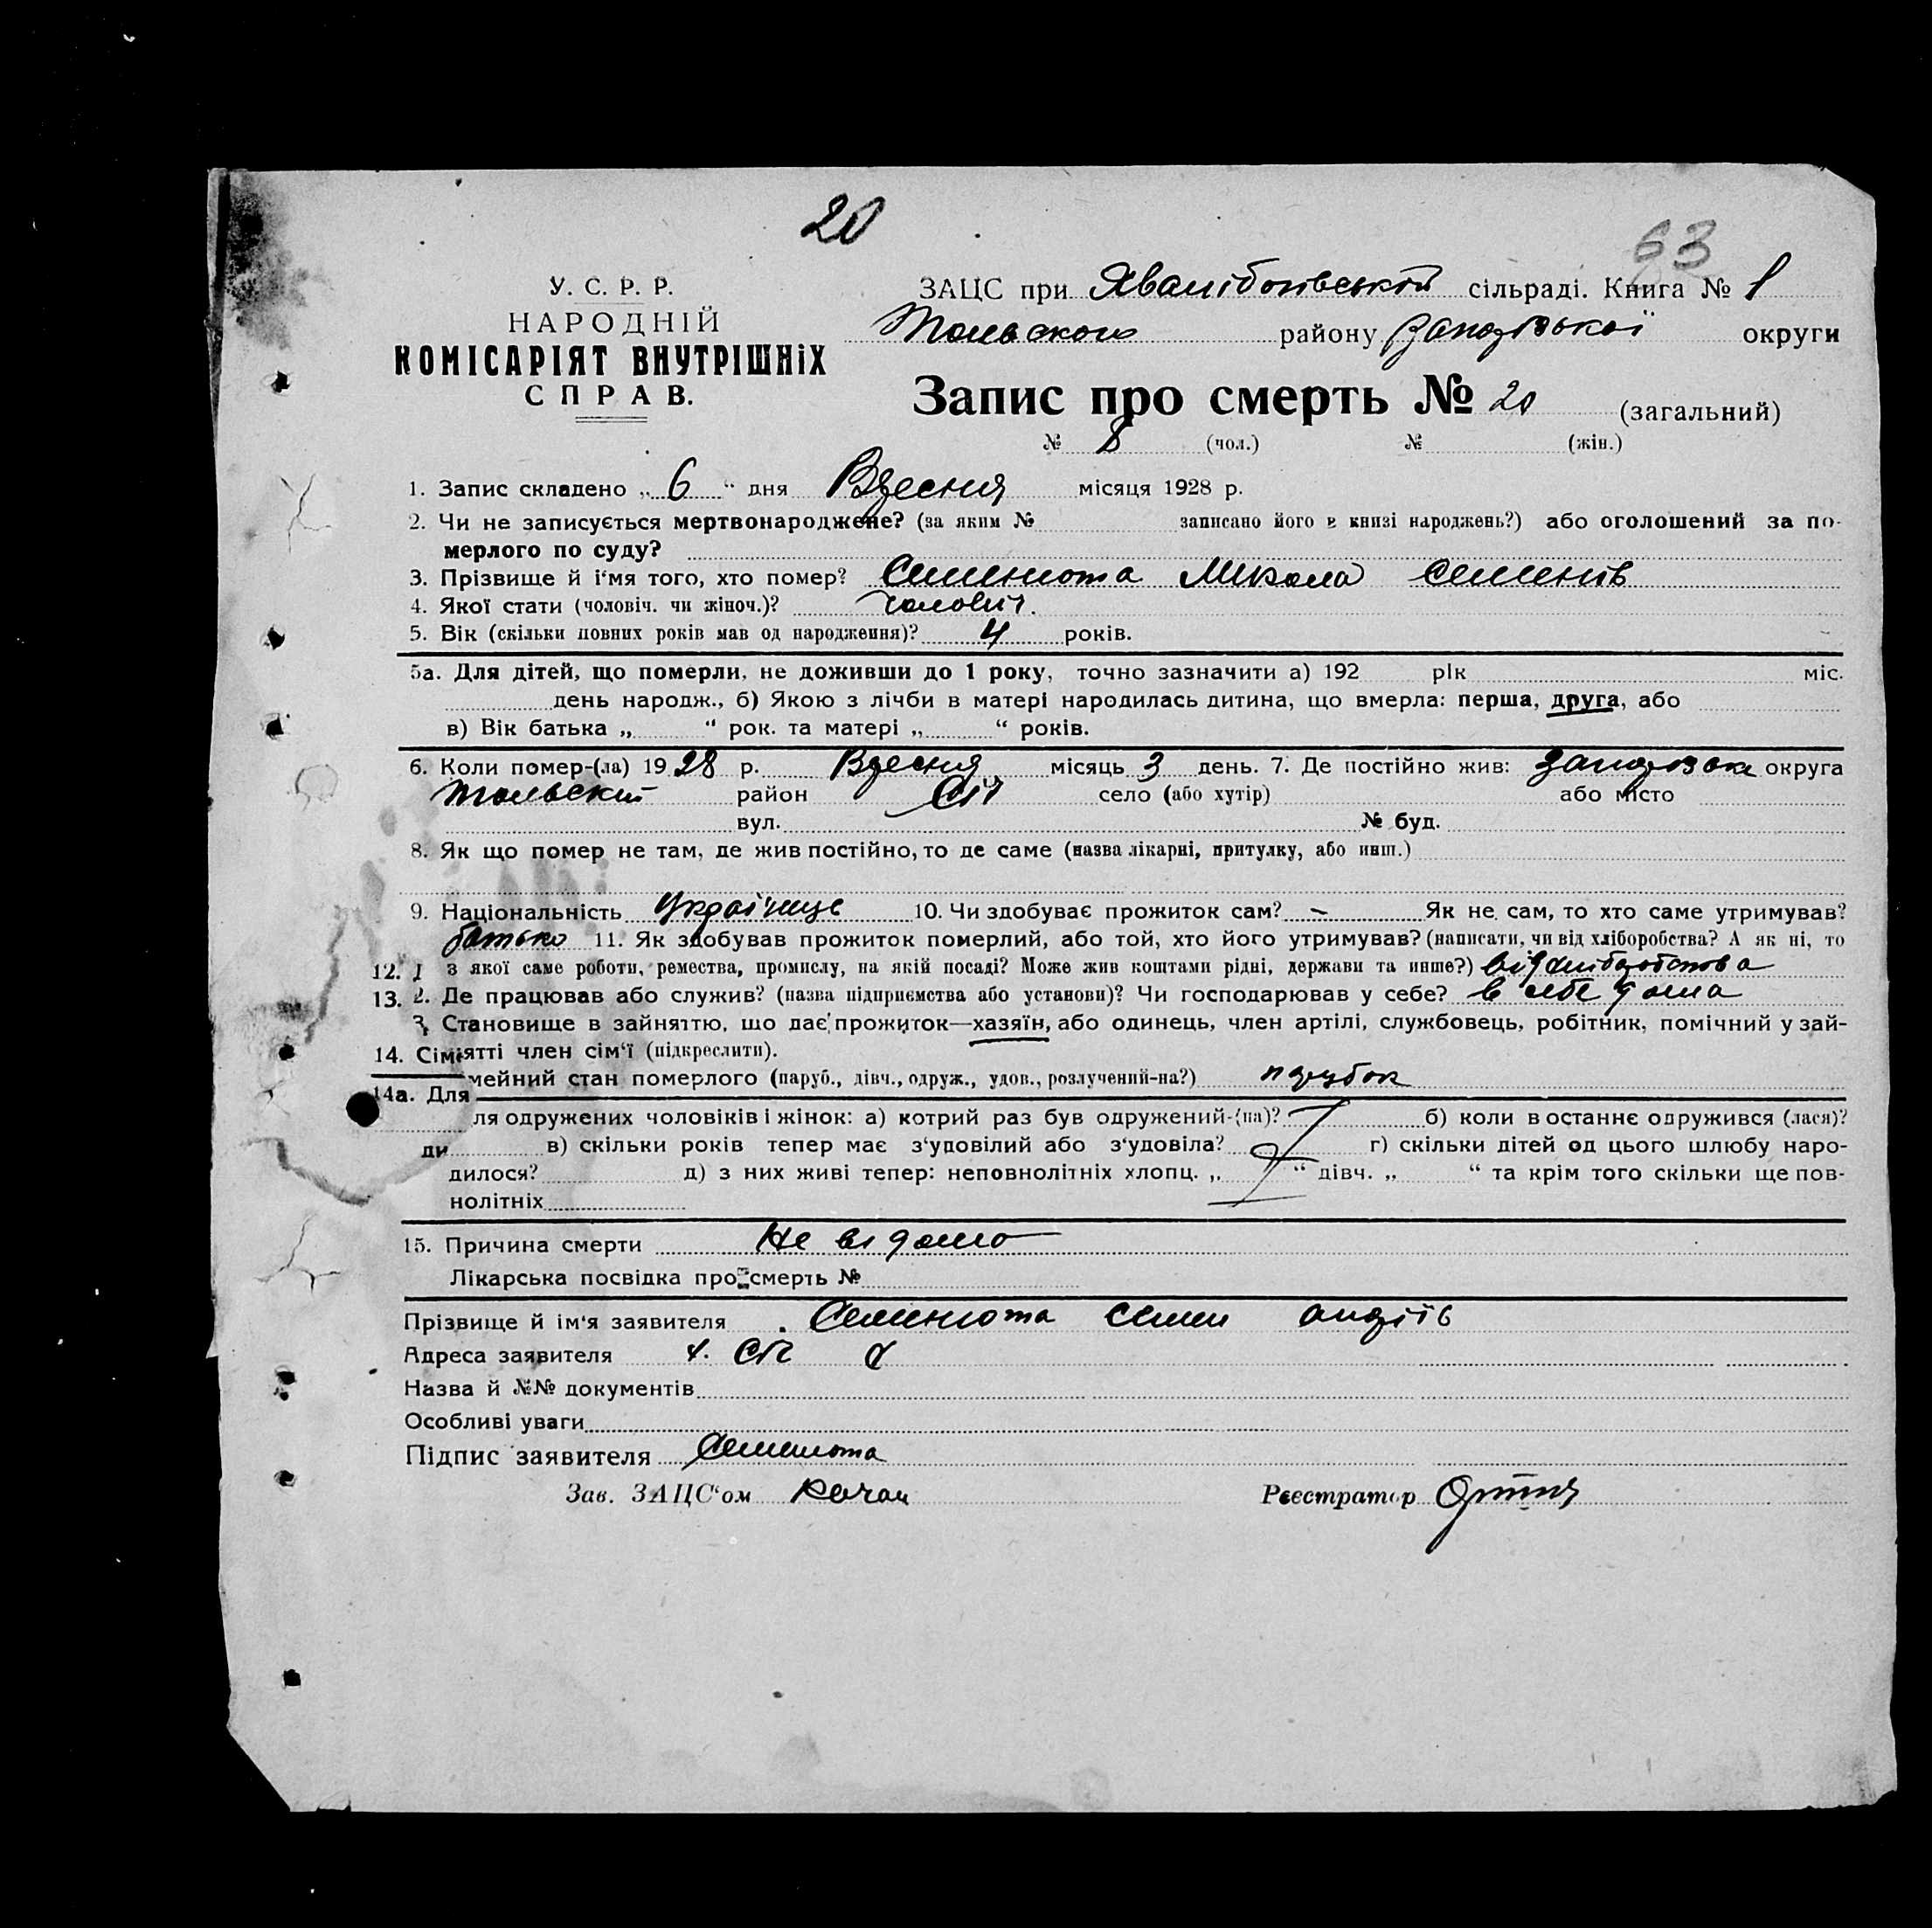 20
63
У. С. Р. Р.
НАРОДНІЙ
КОМІСАРІЯТ ВНУТРІШНІХ
СПРАВ.
ЗАЦС при сільраді. Книга № 1
району округи
Запис про смерть № 20 (загальний)
№ 8 (чол.) № (жін.)
1. Запис складено „ 6 “ дня Вресня місяця 1928 р.
2. Чи не записується мертвонароджене? (за яким № записано його в книзі народжень?) або оголошений за по-
мерлого по суду?
3. Прізвище й і'мя того, хто помер? Семенюта Микола Семенів
4. Якої стати (чоловіч. чи жіноч.)? чоловіч.
5. Вік (скільки повних років мав од народження)? 4 років.
5а. Для дітей, що померли, не доживши до 1 року, точно зазначити а) 192 рік міс.
день народж., б) Якою з лічби в матері народилась дитина, що вмерла: перша, друга, або
в) Вік батька „ “ рок. та матері „ “ років.
6. Коли помер-(ла) 1928 р. Вресня місяць 3 день. 7. Де постійно жив: округа
район Січ село (або хутір) або місто
вул. № буд.
8. Як що помер не там, де жив постійно, то де саме (назва лікарні, притулку, або инш.)
9. Національність Українце 10. Чи здобуває прожиток сам? – Як не сам, то хто саме утримував?
батько 11. Як здобував прожиток померлий, або той, хто його утримував? (написати, чи від хліборобства? А як ні, то
12. 1 з якої саме роботи, ремества, промислу, на якій посаді? Може жив коштами рідні, держави та инше?) від хліборобства
13. 2. Де працював або служив? (назва підприємства або установи)? Чи господарював у себе? в себе дома
3. Становище в зайняттю, що дає прожиток—хазяїн, або одинець, член артілі, службовець, робітник, помічний у зай-
14. Сім ятті член сім'ї (підкреслити).
мейний стан померлого (паруб., дівч., одруж., удов., розлучений-на?) парубок
14а. Для
ля одружених чоловіків і жінок: а) котрий раз був одружений-(на)? б) коли востаннє одружився (лася)?
ди в) скільки років тепер має з'удовілий або з'удовіла? г) скільки дітей од цього шлюбу наро-
дилося? д) з них живі тепер: неповнолітніх хлопц. „ “ дівч. „ “ та крім того скільки ще пов-
нолітніх
15. Причина смерти Не відомо
Лікарська посвідка про смерть №
Прізвище й ім'я заявителя Семенюта Семен андріїв
Адреса заявителя х. Січ
Назва й №№ документів
Особливі уваги
Підпис заявителя Семенюта
Зав. ЗАЦС'ом Реєстратор